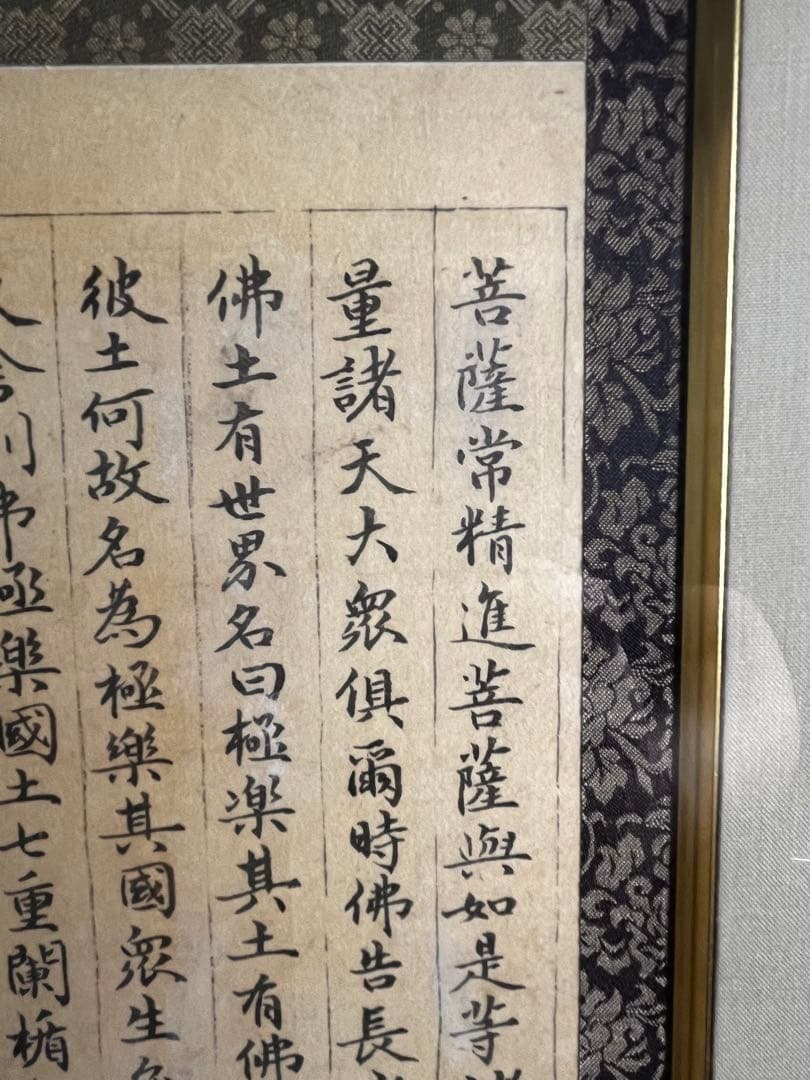 菩薩常精進菩薩與如是等諸
量諸天大衆俱爾時佛告長
佛土有世界名曰極楽其土有佛
彼土何故名為極樂其國衆生
又舍利弗極樂國土七重闌楯